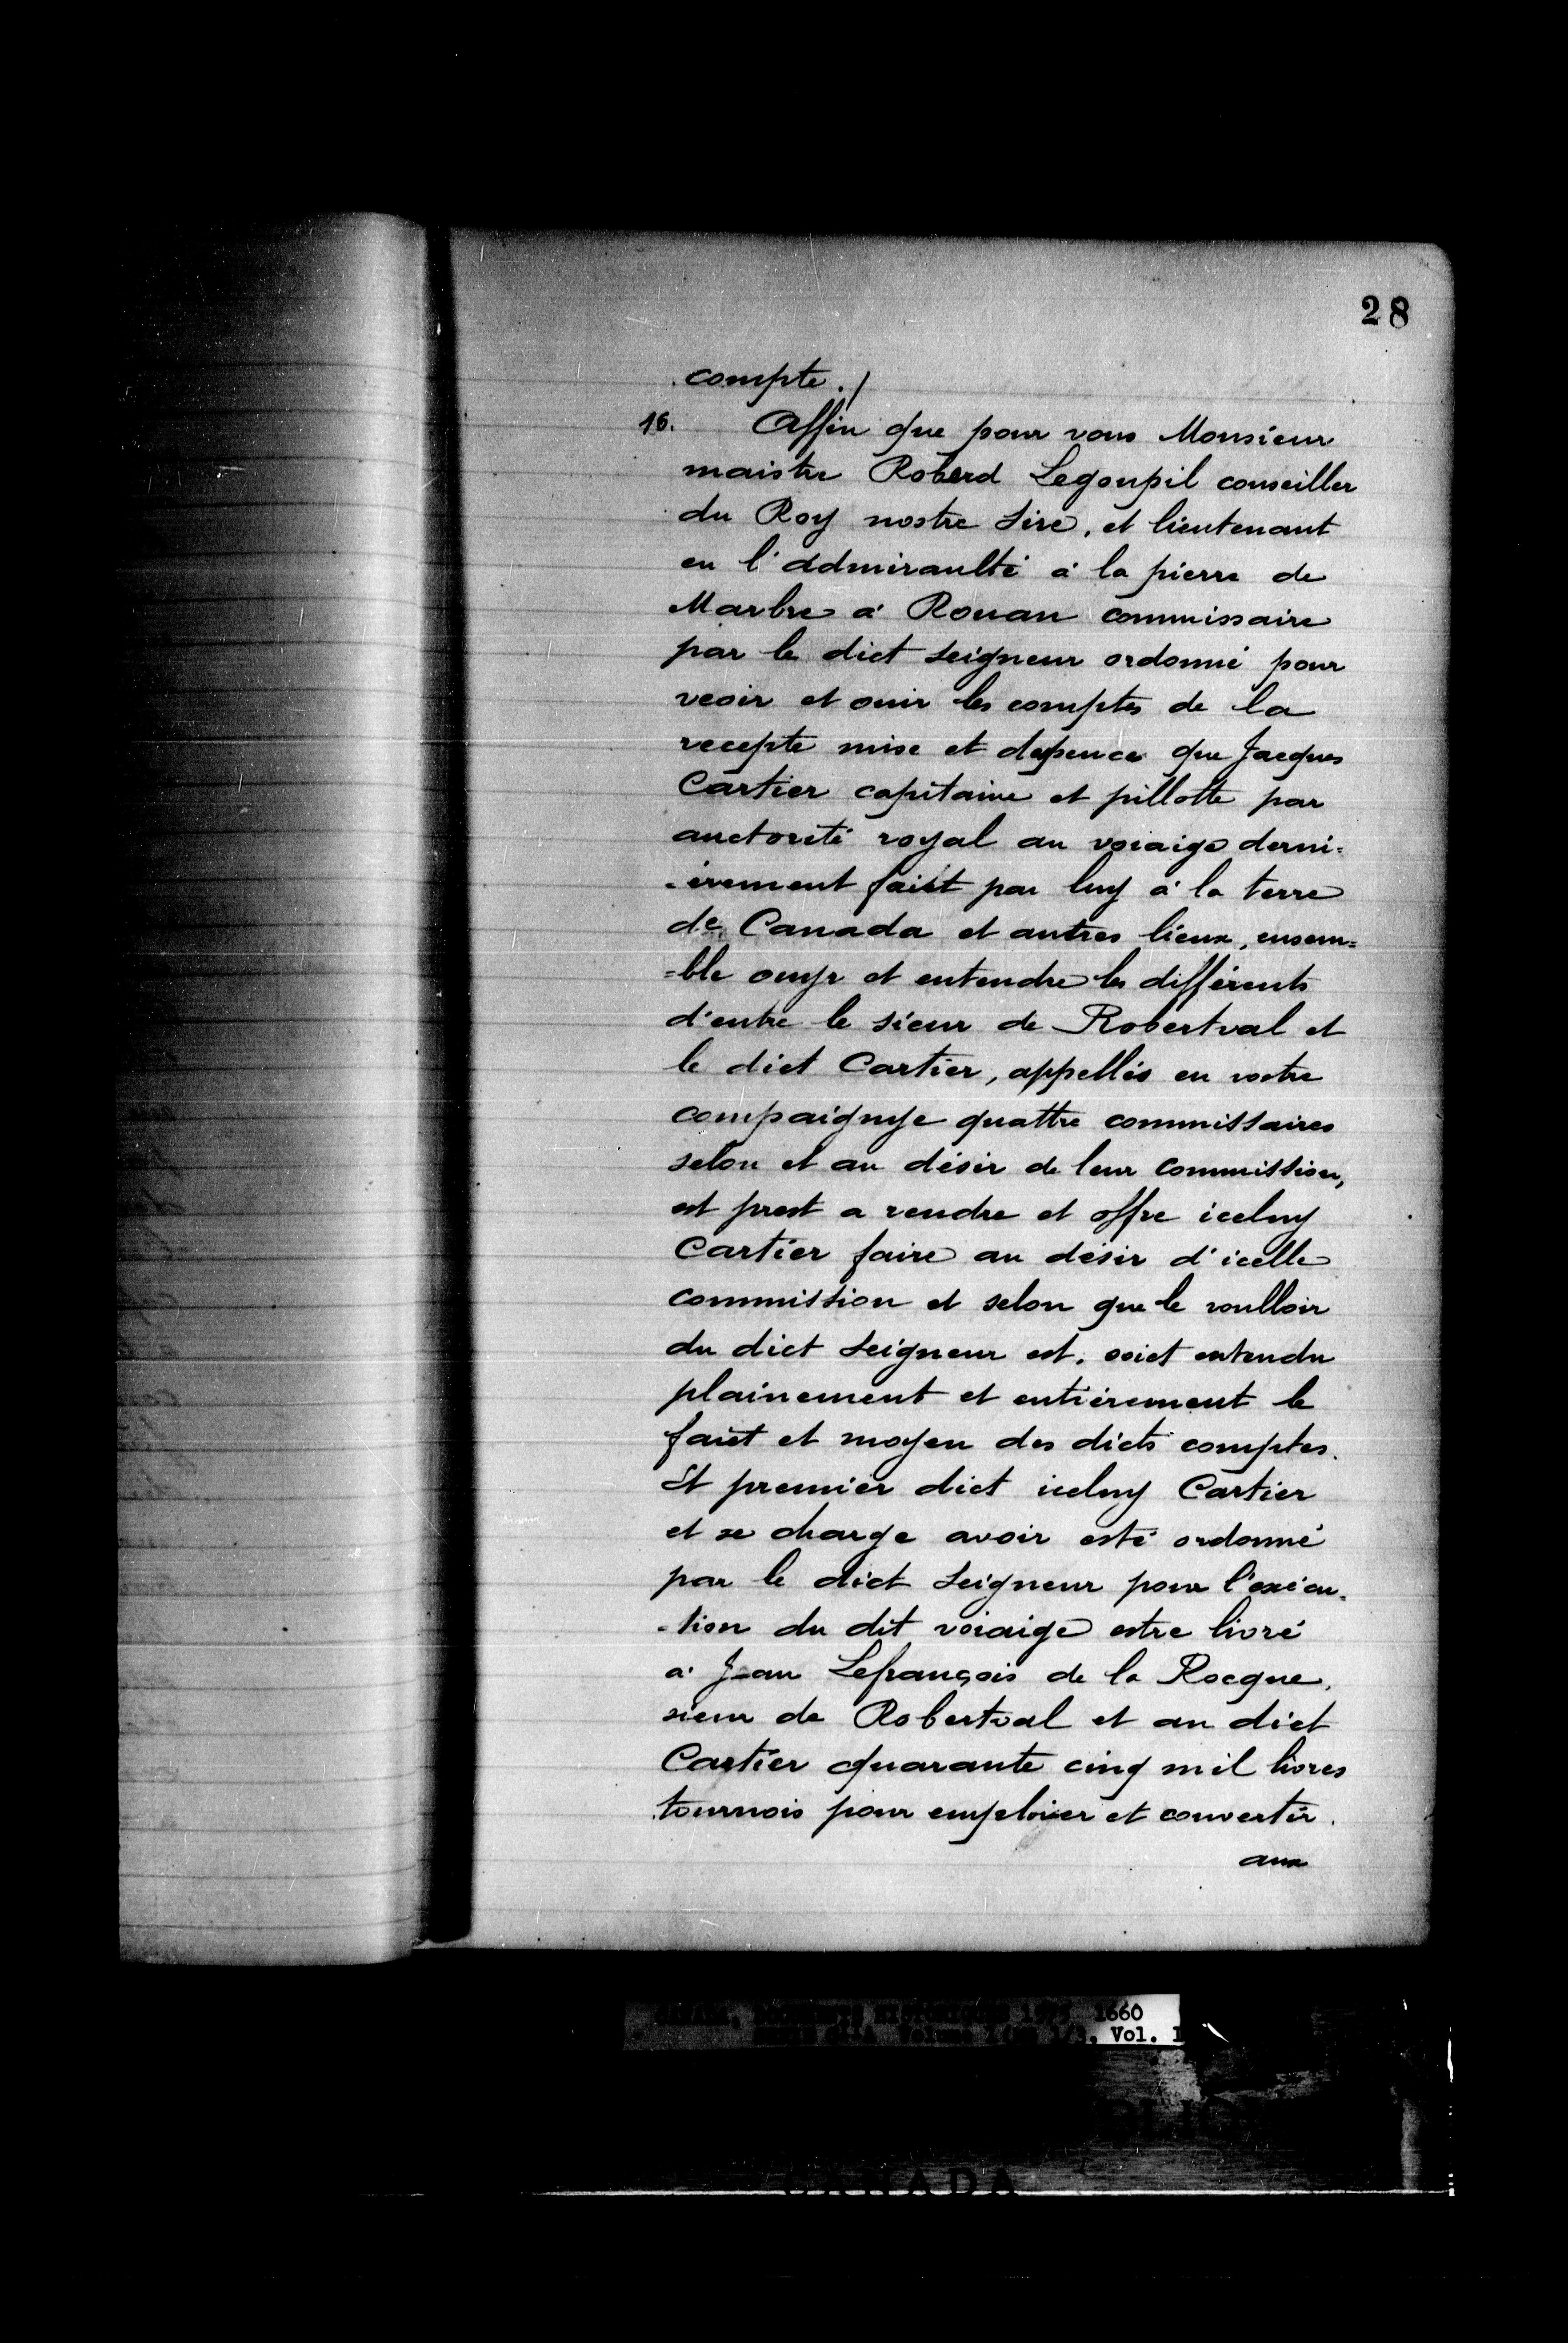 28
compte./
16. Affin que pour vous Monsieur
maistre Roberd Legoupil conseiller
du Roy nostre Sire, et lieutenant
en l'admiraulté à la pierre de
Marbre à Rouan commissaire
par le dict seigneur ordonné pour
veoir et ouir les comptes de la
recepte mise et depence que Jacques
Cartier capitaine et pillotte par
auctorité royal au voiaige derni-
-èrement faict par luy à la terre
de Canada et autres lieux, ensem=
=ble ouyr et entendre les différents
d'entre le sieur de Robertval et
le dict Cartier, appellés en vostre
compaignye quattre commissaires
selon et au désir de leur commission,
est prest a rendre et offre iceluy
Cartier faire au désir d'icelle
commission et selon que le voulloir
du dict seigneur est, soict entendu
plainement et entièrement le
faict et moyen des dicts comptes.
Et premier dict iceluy Cartier
et se charge avoir esté ordonné
par le dict seigneur pour l'exécu-
-tion du dit voiaige estre livré
à Jean Lefrançois de la Rocque,
sieur de Robertval et au dict
Cartier quarante cinq mil livres
tournois pour emploier et convertir
aux
1660
Vol. I
CANADA